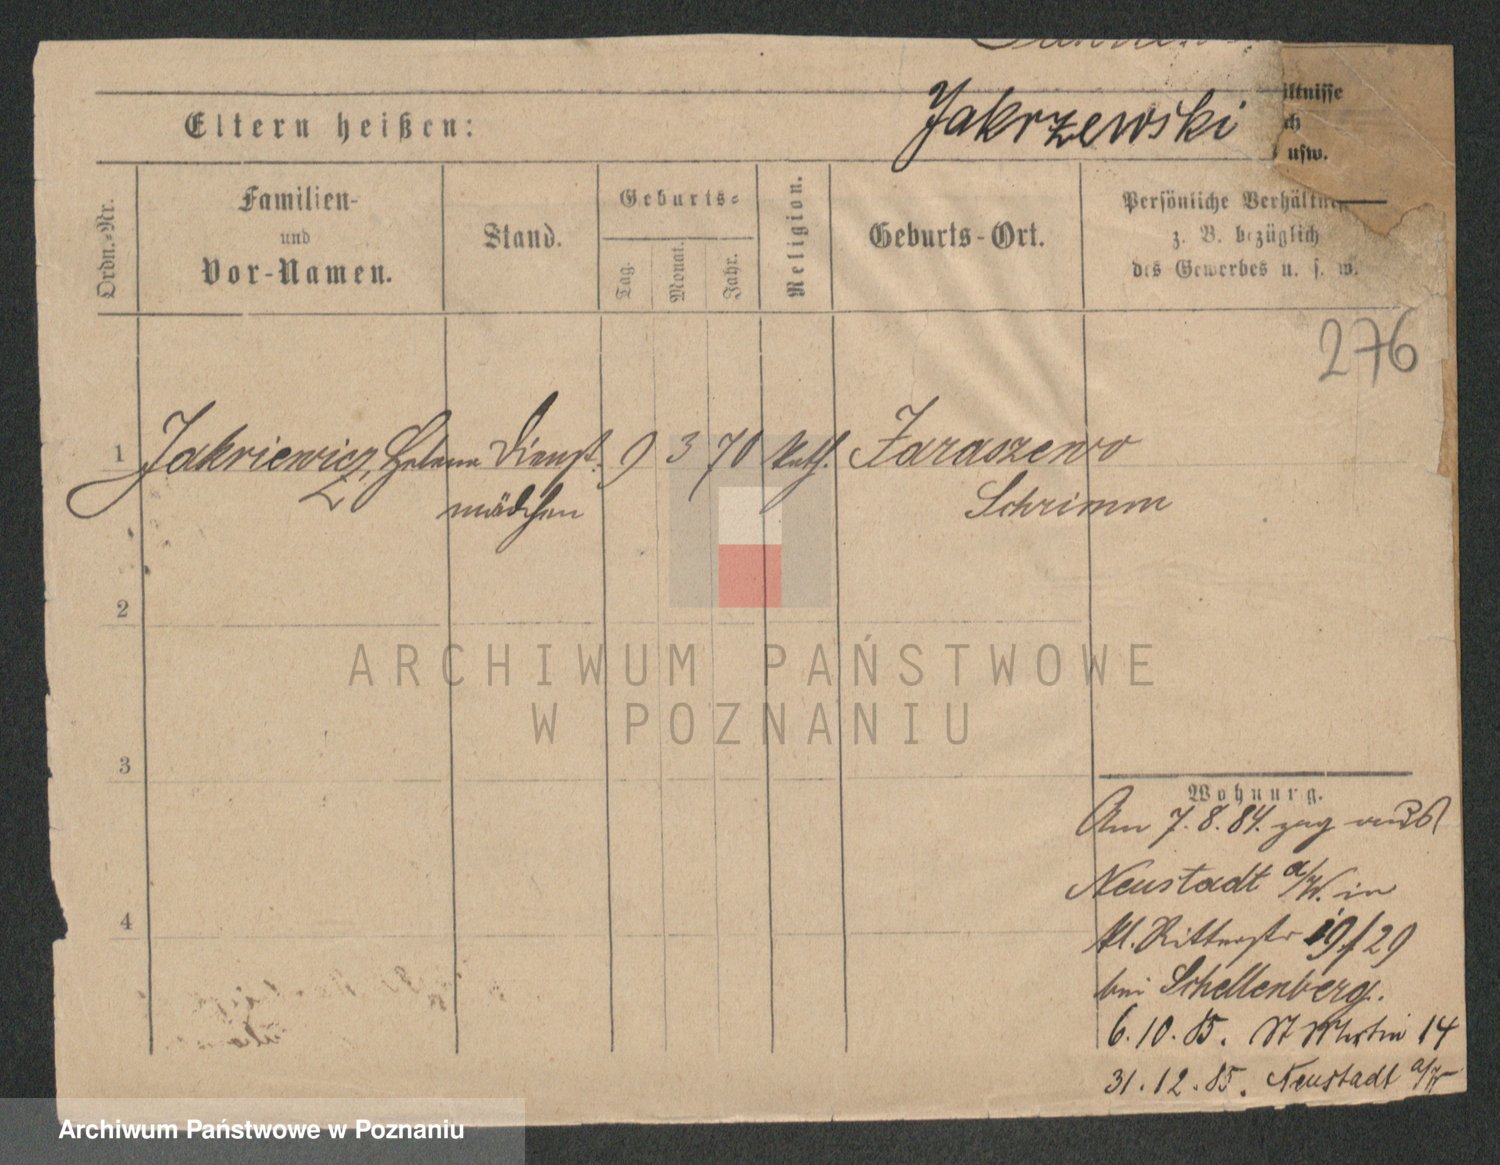 Jakrzewski
ältnisse
ch
usw.
Eltern heißen:
Ordn.-Nr.
Familien-
und
Vor-Namen.
Stand.
Geburts-
Tag.
Monat.
Jahr.
Religion.
Geburts-Ort.
Persönliche Verhältn
z. B. bezüglich
des Gewerbes u. s. w.
276
1 Jakriewicz, Helena Dienst- 9 3 70 kath. Zaraszewo
mädchen Schrimm
2
3
4
ARCHIWUM PAŃSTWOWE
W POZNANIU
Wohnung.
Am 7. 8. 84. zog aus
Neustadt a/W. in
kl. Ritterstr 19/29
bei Schellenberg.
6. 10. 85. St Martin 14
31. 12. 85. Neustadt a/W
Archiwum Państwowe w Poznaniu